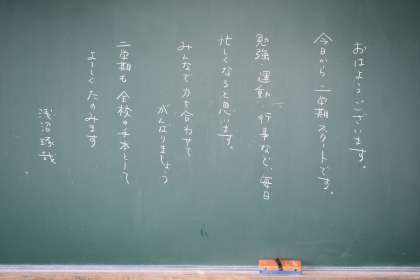 おはようございます。
今日から二学期スタートです。
勉強・運動・行事など、毎日
忙しくなると思います。
みんなで力を合わせて
がんばりましょう
二学期も全校の手本として
よろしくたのみます
浅沼琢哉